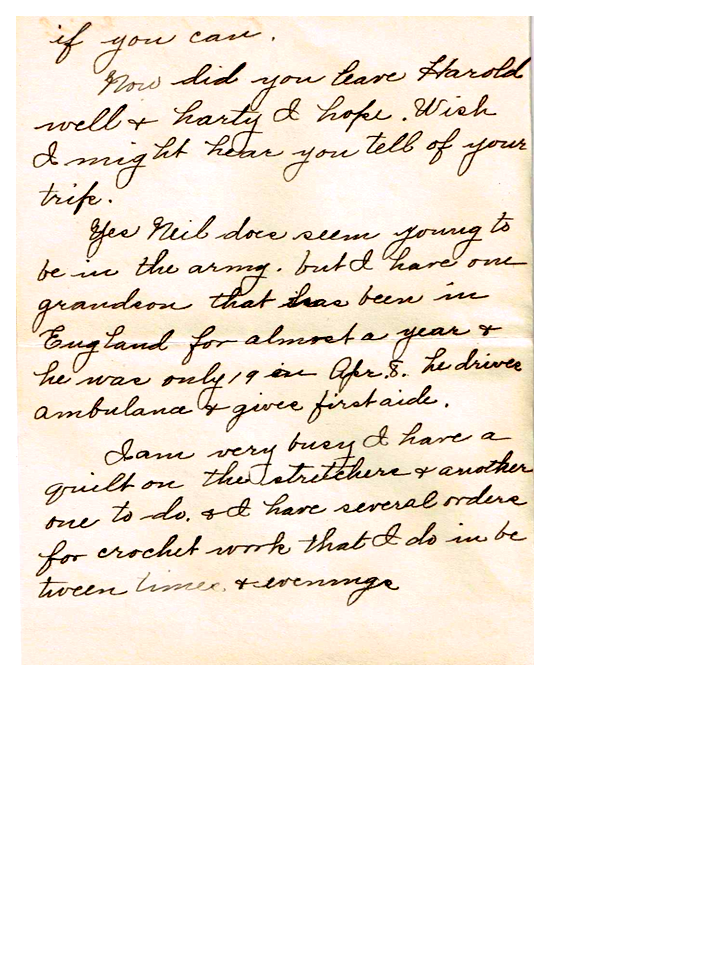 if you can.
Now did you leave Harold
well & harty I hope. Wish
I might hear you tell of your
trip.
Yes Neil does seem young to
be in the army. but I have one
grandson that has been in
England for almost a year &
he was only 19 in Apr. 8. he drives
ambulance & gives first aide.
I am very busy I have a
quilt on the stretchers & another
one to do. & I have several orders
for crochet work that I do in be
tween times. & evenings